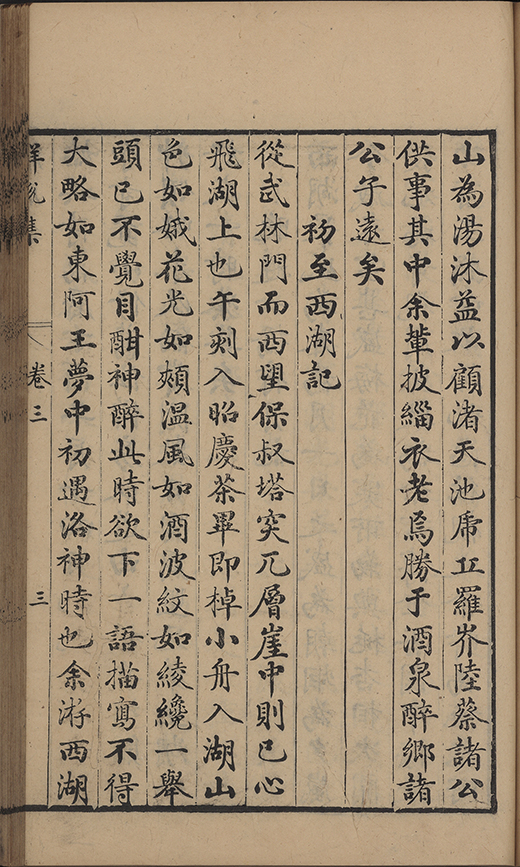 山為湯沐益以顧渚天池虎丘羅岕陸蔡諸公
供事其中余輩披緇衣老焉勝于酒泉醉鄉諸
公子遠矣
初至西湖記
從武林門而西望保叔塔突兀層崖中則已心
飛湖上也午刻入昭慶茶畢即棹小舟入湖山
色如娥花光如頰溫風如酒波紋如綾纔一舉
頭已不覺目酣神醉此時欲下一語描寫不得
大略如東阿王夢中初遇洛神時也余游西湖
卷三
三